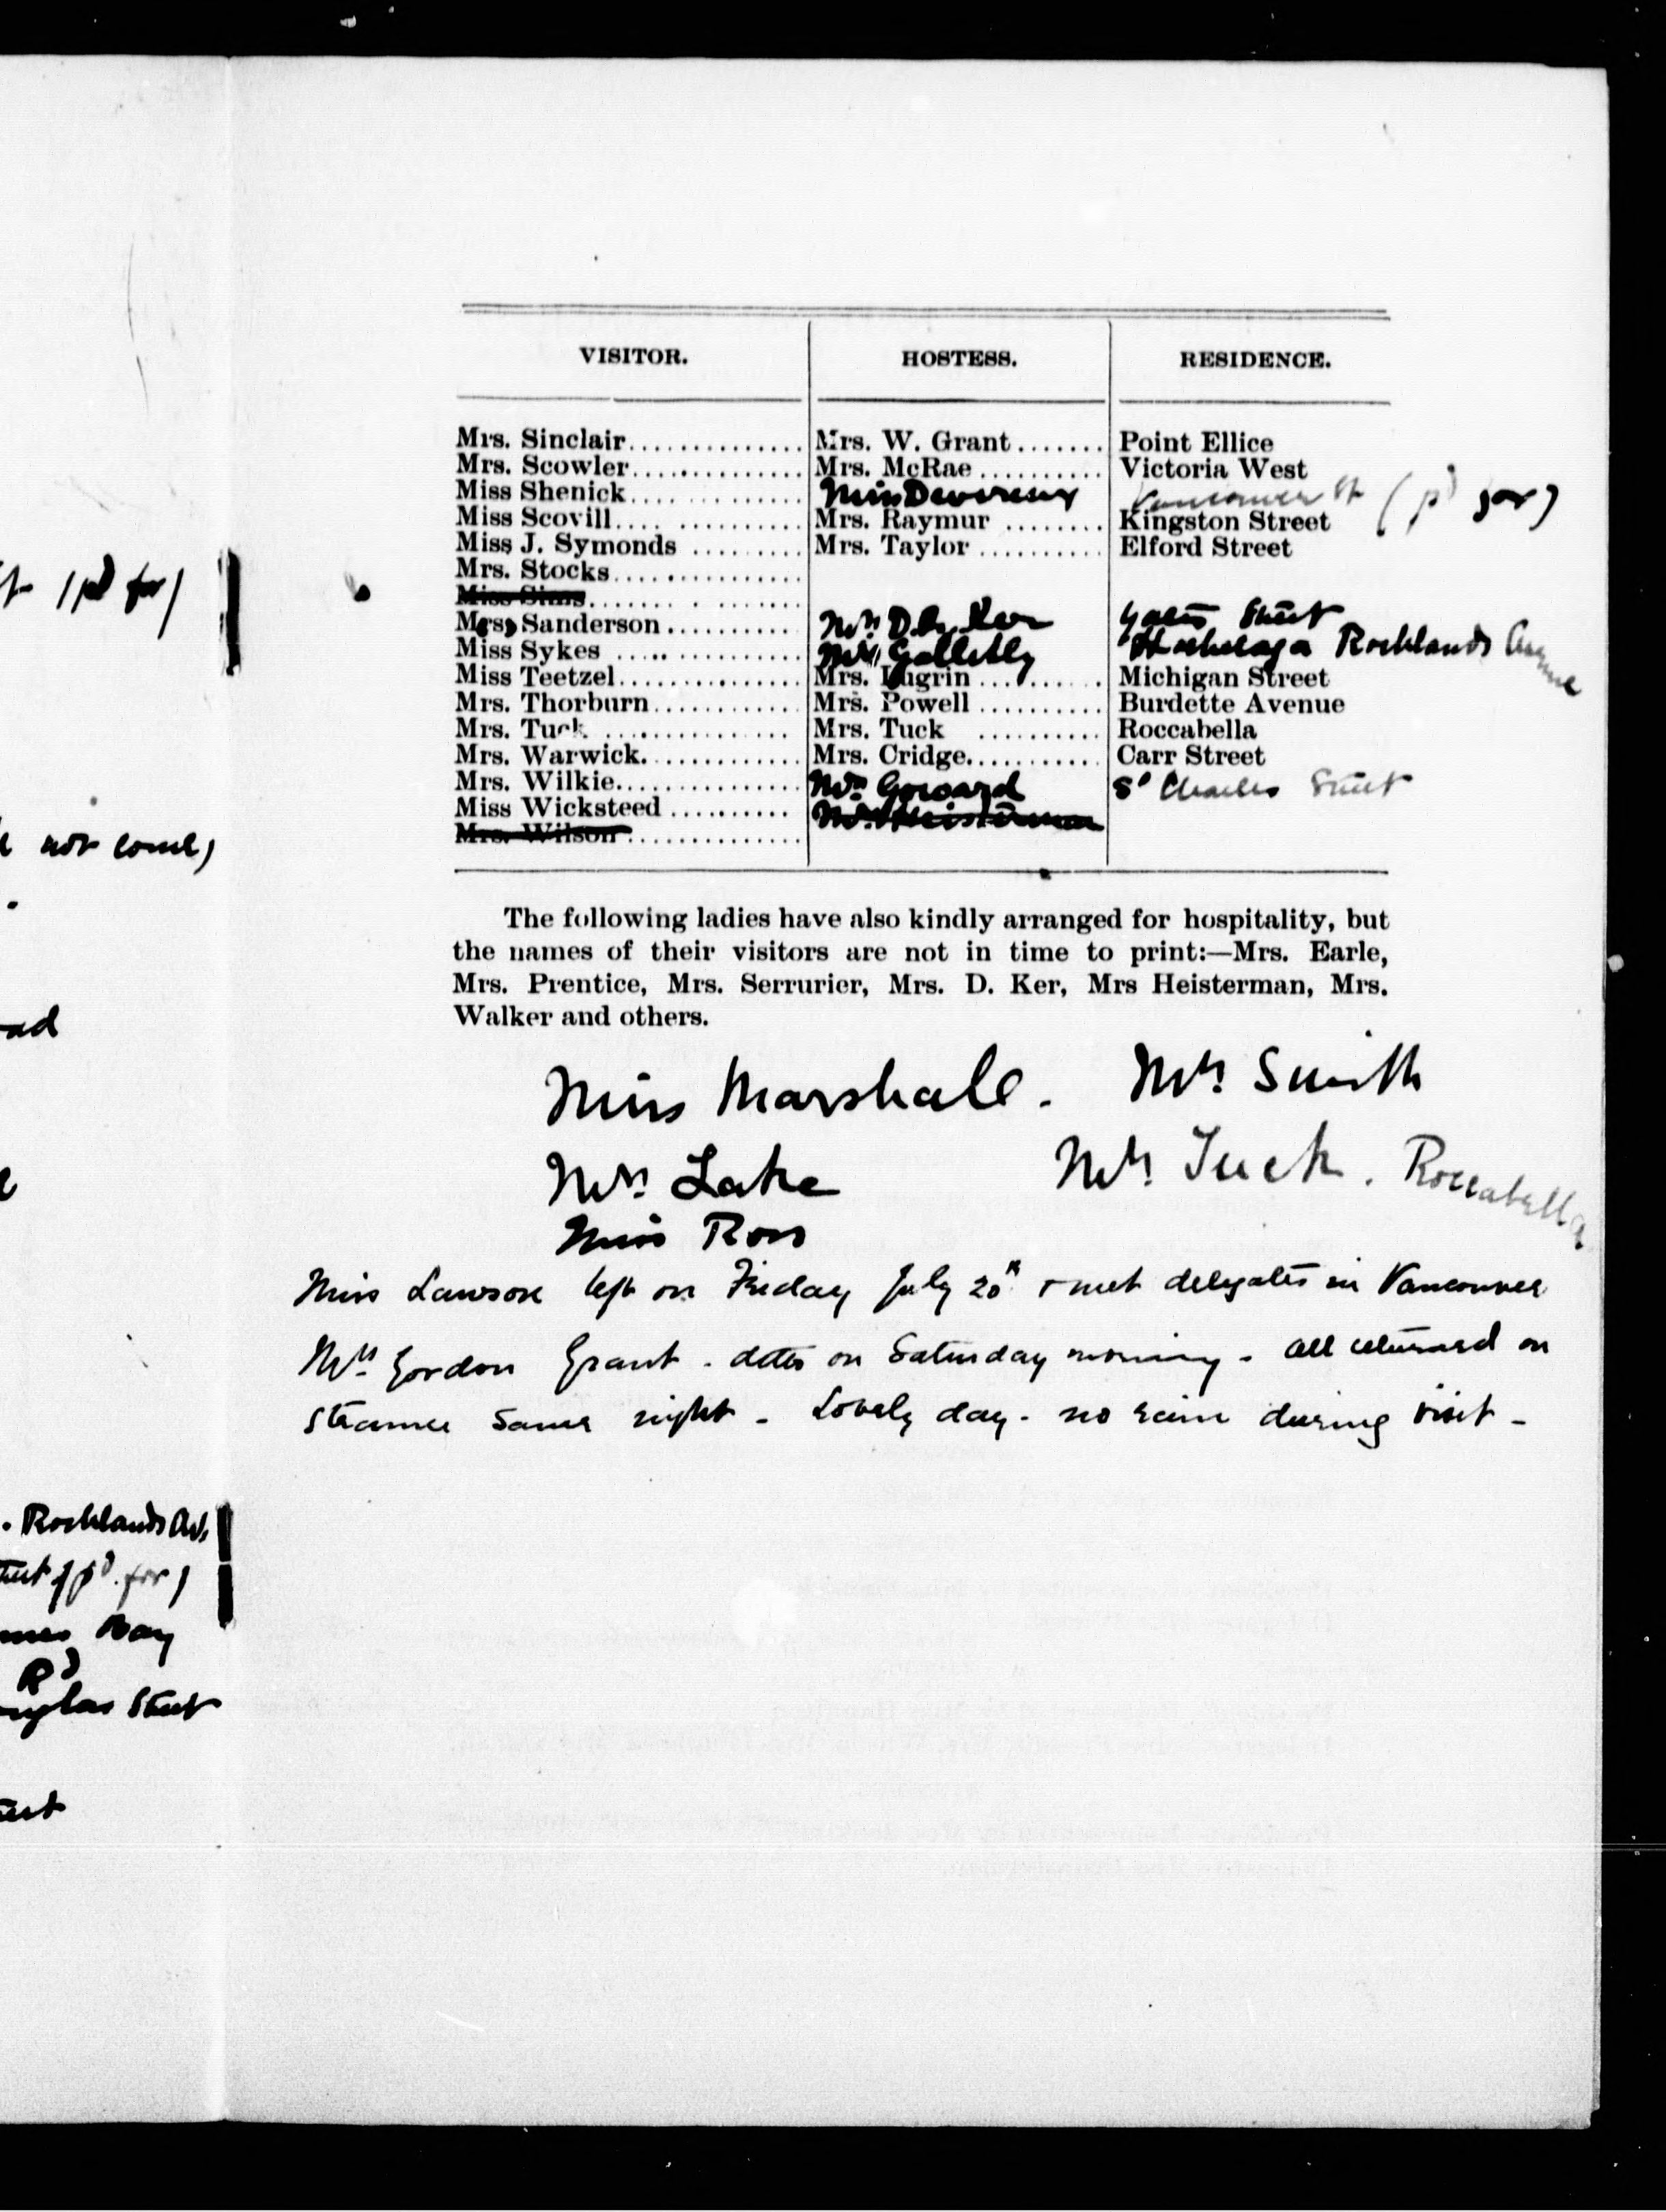 VISITOR. HOSTESS. RESIDENCE.
Mrs. Sinclair............... Mrs. W. Grant....... Point Ellice
Mrs. Scowler............... Mrs. McRae.......... Victoria West
Miss Shenick............... Miss Devereux Vancouver St (pd for)
Miss Scovill.... .......... Mrs. Raymur ........ Kingston Street
Miss J. Symonds ......... Mrs. Taylor.......... Elford Street
Mrs. Stocks...............
Miss Sims....... . .......
Mrs. Sanderson........... Mrs. D. R. Ker Yates Street
Miss Sykes ............... Mrs. Galletly Hochelaga Rocklands Avenue
Miss Teetzel............... Mrs. Lugrin.......... Michigan Street
Mrs. Thorburn............ Mrs. Powell.......... Burdette Avenue
Mrs. Tuck ............... Mrs. Tuck .......... Roccabella
Mrs. Warwick............. Mrs. Cridge........... Carr Street
Mrs. Wilkie............... Mrs. Goward St Charles Street
Miss Wicksteed .......... Mrs. Heisterman
Mrs. Wilson..............
The following ladies have also kindly arranged for hospitality, but
the names of their visitors are not in time to print:—Mrs. Earle,
Mrs. Prentice, Mrs. Serrurier, Mrs. D. Ker, Mrs Heisterman, Mrs.
Walker and others.
Miss Marshall. Mrs. Smith
Mrs. Lake Mrs. Tuck. Roccabella
Miss Ross
Miss Lawson left on Friday July 20th & met delegates in Vancouver
Mrs. Gordon Grant - ditto on Saturday morning - all returned on
steamer same night - Lovely day - no rain during visit -
(pd for)
not come)
Rocklands Av.
(pd. for)
Bay
Rd
Street